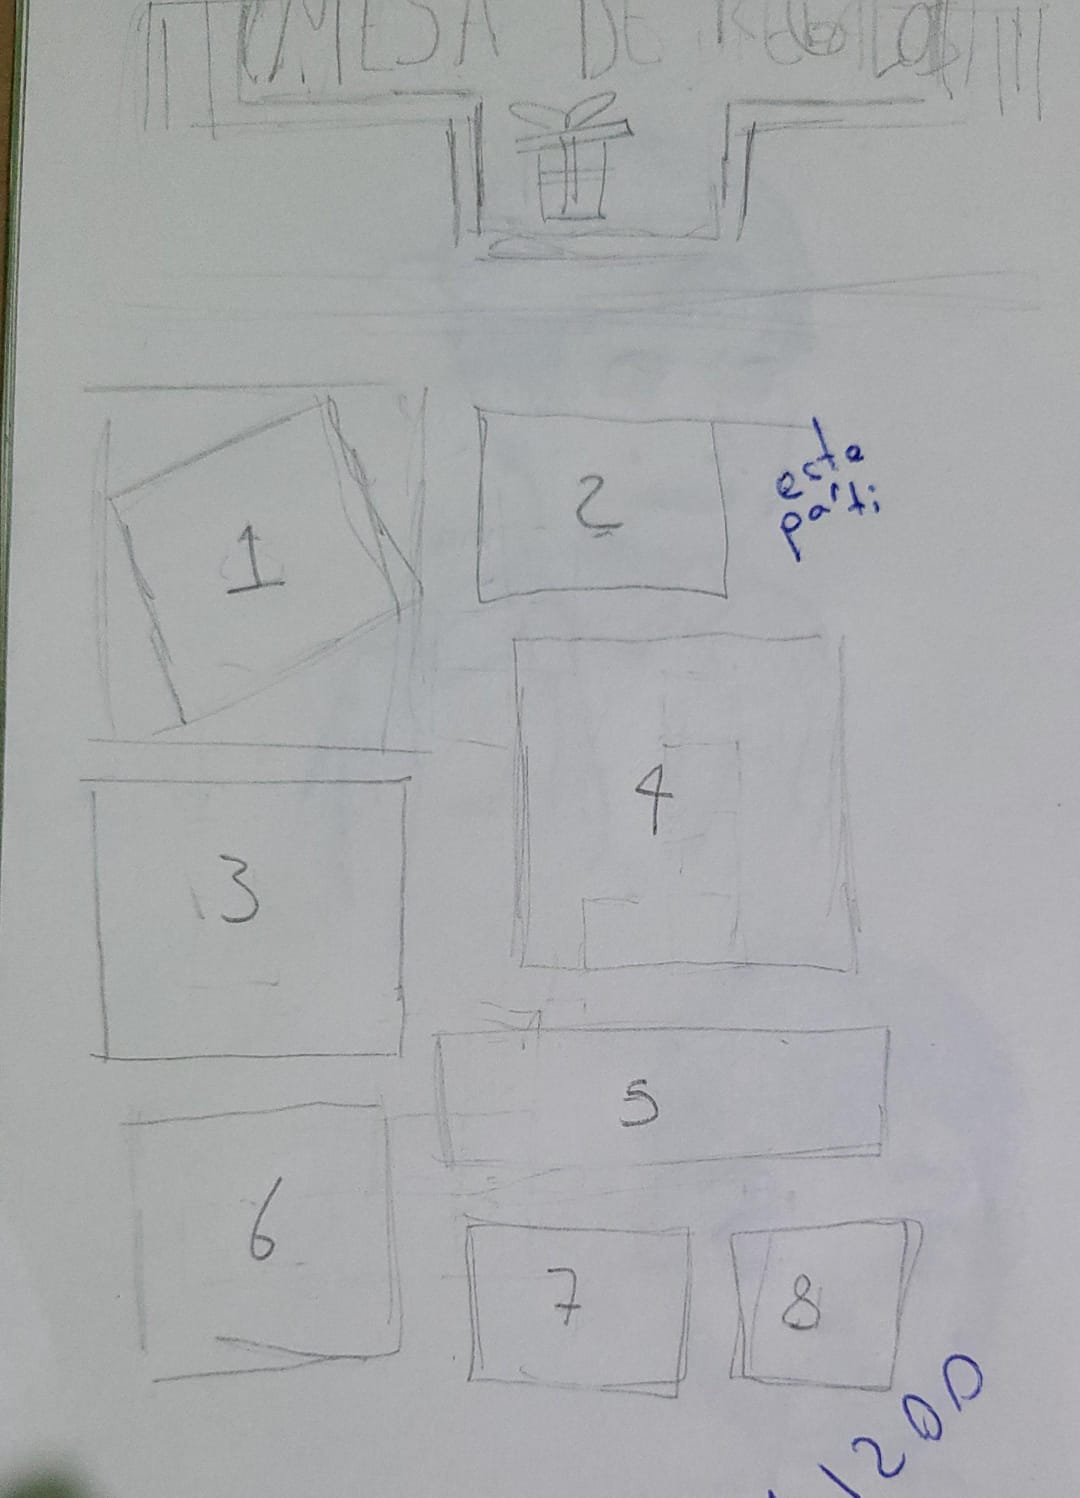 MESA DE REGALOS
1
2
este
pa'ti
3
4
5
6
7
8
1200